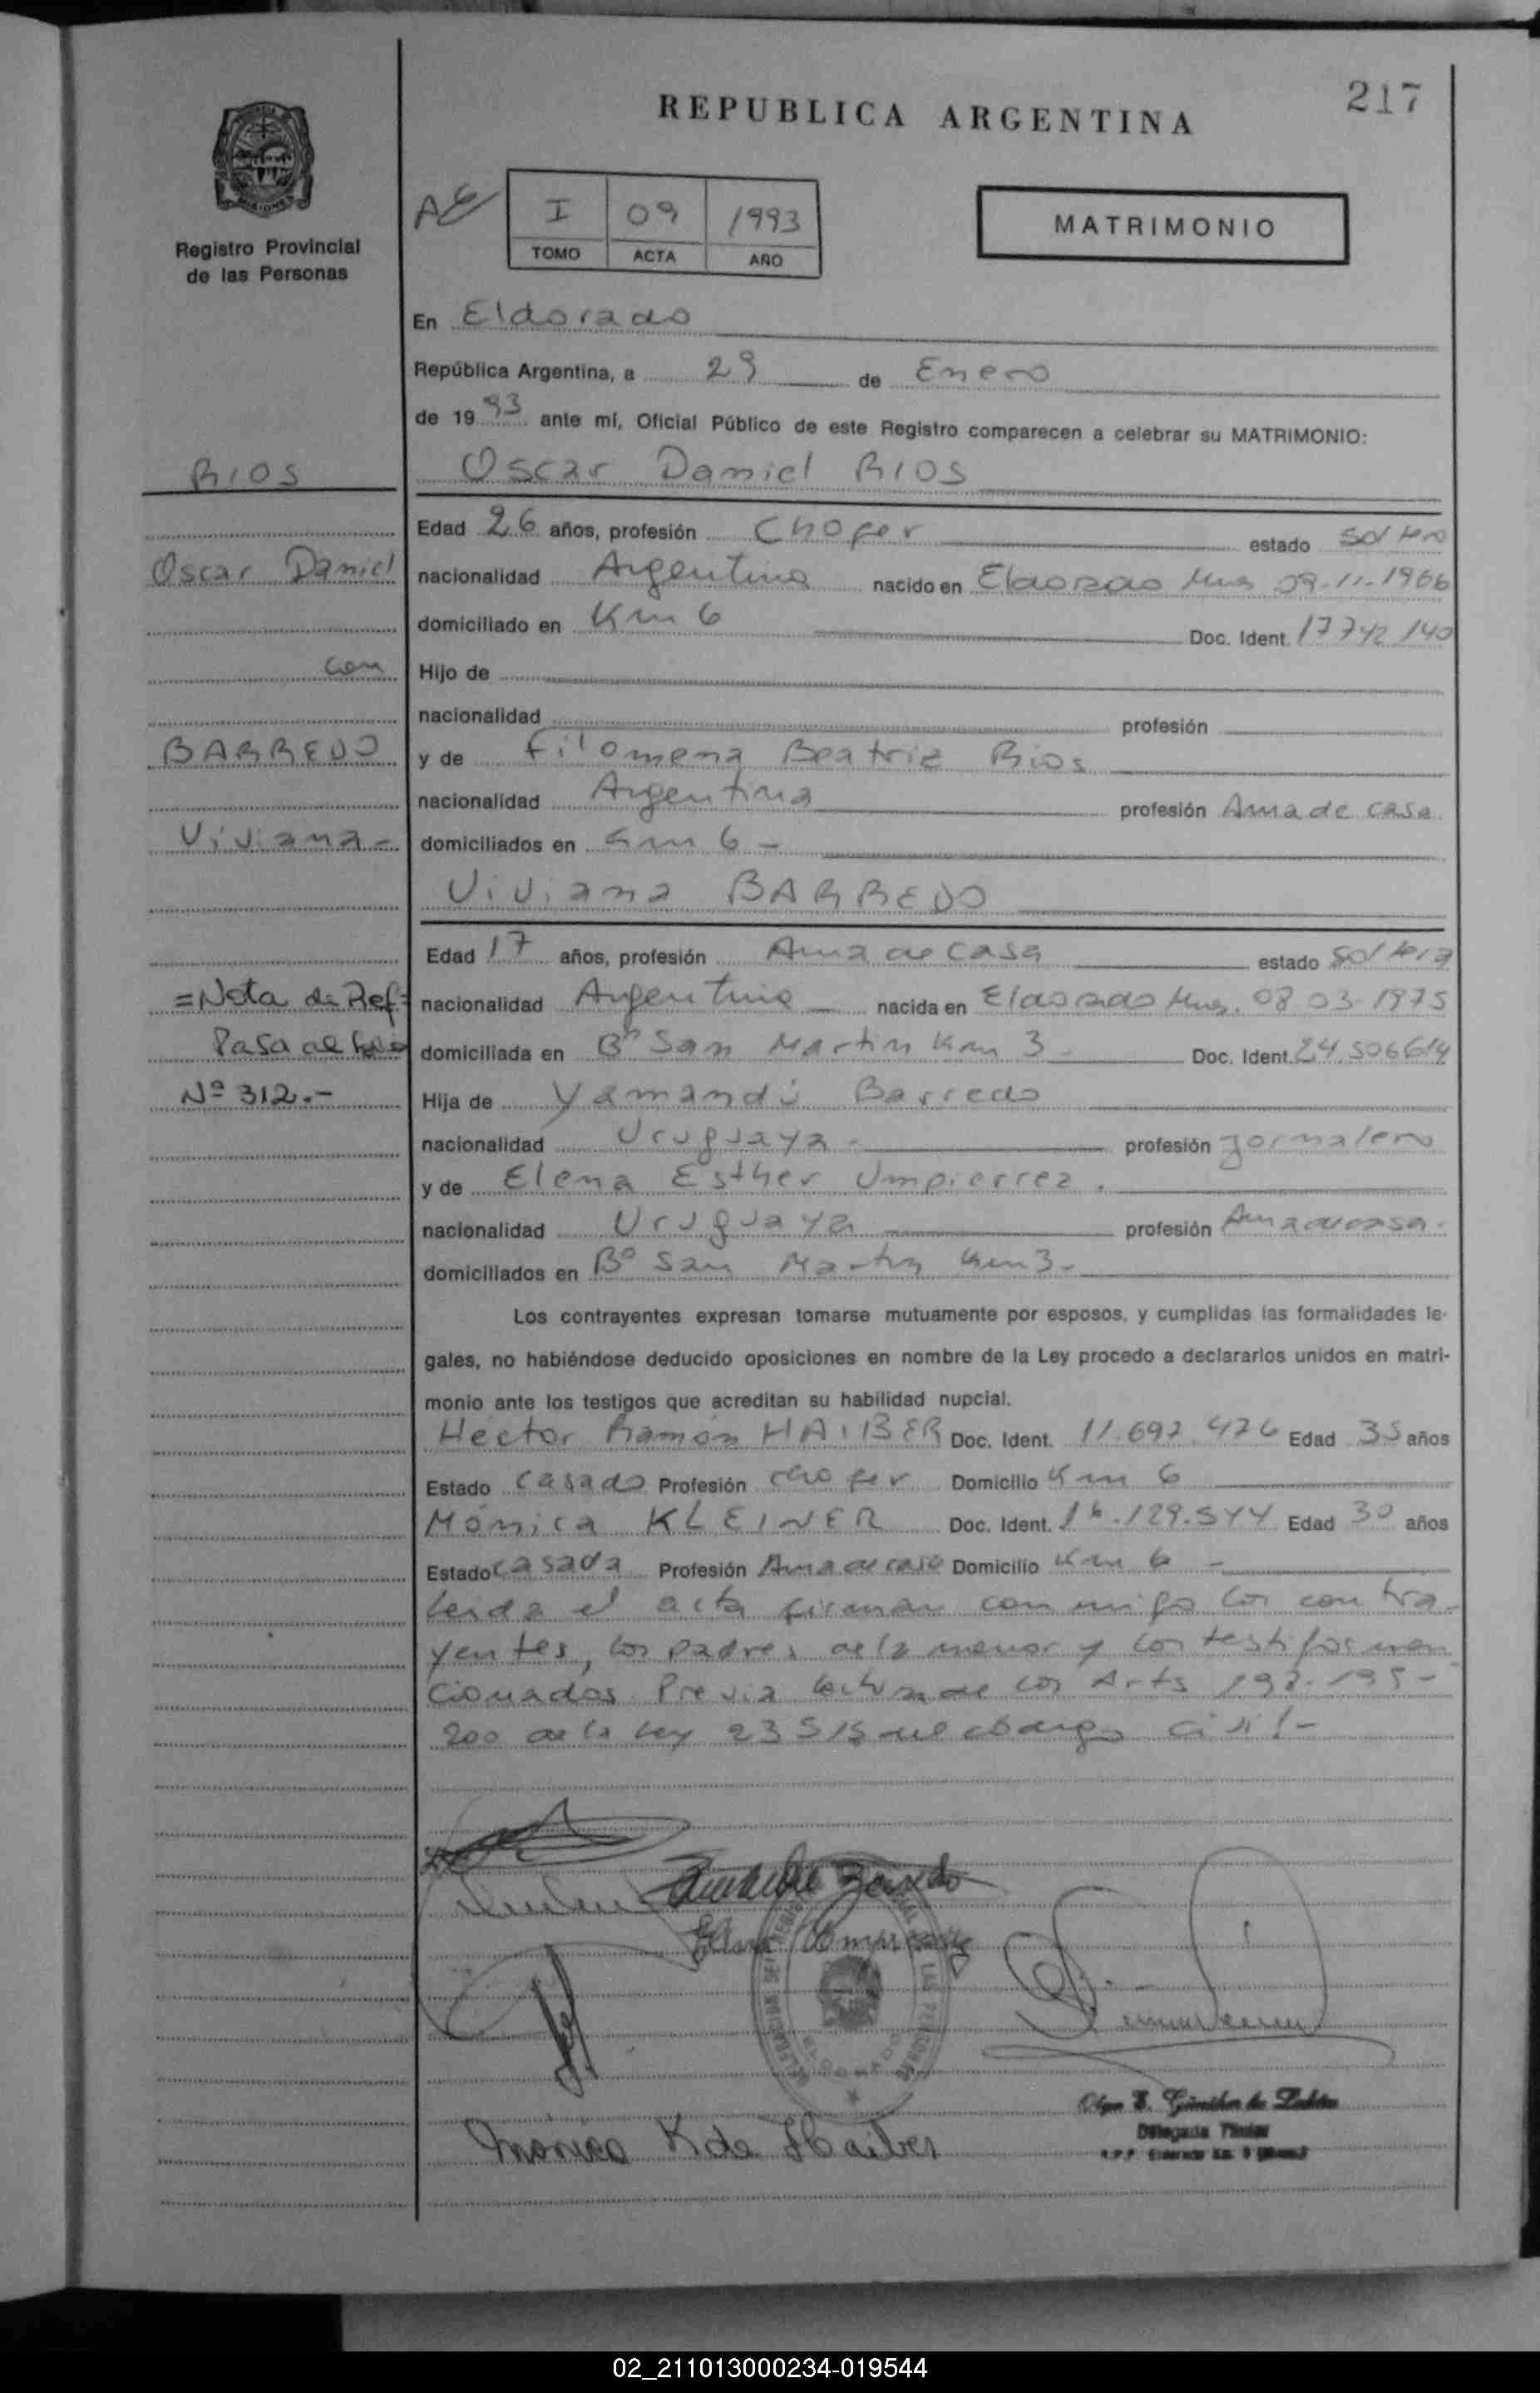 217
REPUBLICA ARGENTINA
Registro Provincial
de las Personas
I 09 1993
TOMO ACTA AÑO
MATRIMONIO
En Eldorado
República Argentina, a 29 de Enero
de 1993 ante mí, Oficial Público de este Registro comparecen a celebrar su MATRIMONIO:
RIOS
Oscar Daniel RIOS
Edad 26 años, profesión Chofer estado soltero
Oscar Daniel
nacionalidad Argentina nacido en Eldorado Mnes 09-11-1966
domiciliado en Km 6 Doc. Ident. 17742140
con
Hijo de
nacionalidad profesión
BARREDO
y de Filomena Beatriz Rios
nacionalidad Argentina profesión Ama de casa
Viviana-
domiciliados en Km 6 -
Viviana BARREDO
Edad 17 años, profesión Ama de casa estado soltera
=Nota de Ref=
nacionalidad Argentina nacida en Eldorado Mnes. 08-03-1975
Pasa al folio
domiciliada en Bº San Martin Km 3- Doc. Ident. 24.506614
Nº 312.-
Hija de Yamandú Barredo
nacionalidad Uruguaya- profesión jornalero
y de Elena Esther Umpierrez.
nacionalidad Uruguaya profesión Ama de casa.
domiciliados en Bº San Martin Km 3-
Los contrayentes expresan tomarse mutuamente por esposos, y cumplidas las formalidades le-
gales, no habiéndose deducido oposiciones en nombre de la Ley procedo a declararlos unidos en matri-
monio ante los testigos que acreditan su habilidad nupcial.
Héctor Ramón HAIBER Doc. Ident. 11.697.476 Edad 35 años
Estado casado Profesión chofer Domicilio Km 6
Mónica KLEINER Doc. Ident. 16.129.544 Edad 30 años
Estado casada Profesión Ama de casa Domicilio Km 6 -
Leida el acta firman conmigo los contra-
yentes, los padres de la menor y los testigos men
cionados. Previa lectura de los Arts 198-199-
200 de la Ley 23515 del código civil-
Elena Umpierrez
Mónica K de Haiber
Delegada Titular
02_211013000234-019544